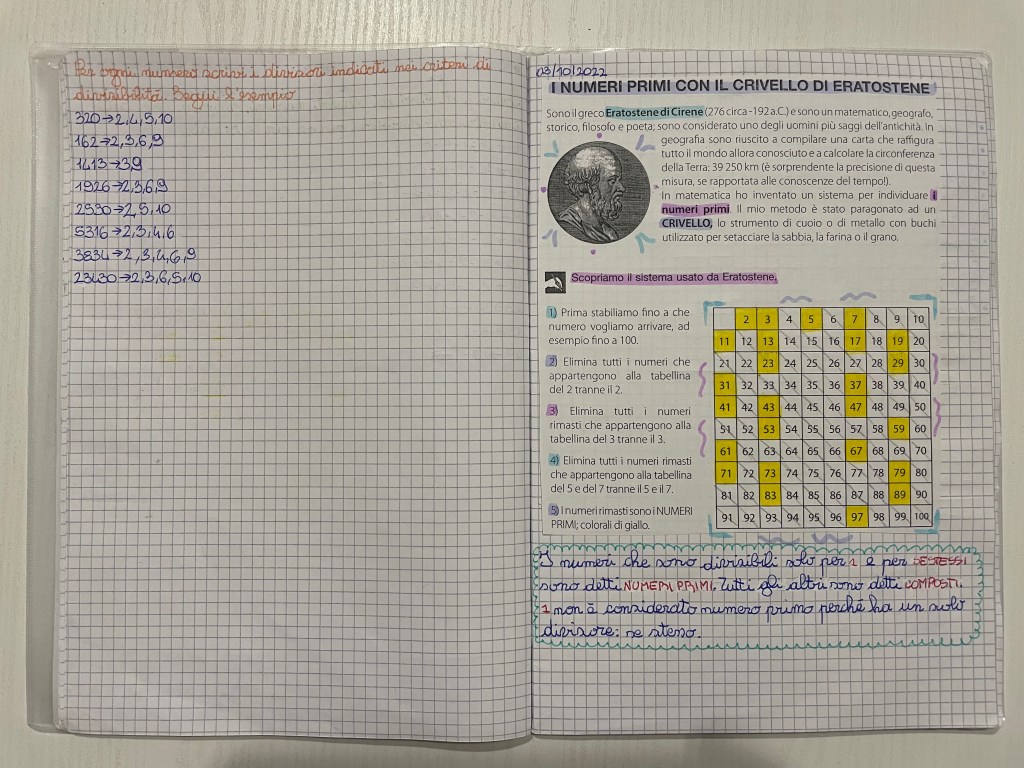 Per ogni numero scrivi i divisori indicati nei criteri di
divisibilità. Segui l'esempio
320→2,4,5,10
162→2,3,6,9
1413→3,9
1926→2,3,6,9
2530→2,5,10
5316→2,3,4,6
3834→2,3,4,6,9
23430→2,3,6,5,10
03/10/2022
I NUMERI PRIMI CON IL CRIVELLO DI ERATOSTENE
Sono il greco Eratostene di Cirene (276 circa -192 a.C.) e sono un matematico, geografo,
storico, filosofo e poeta; sono considerato uno degli uomini più saggi dell'antichità. In
geografia sono riuscito a compilare una carta che raffigura
tutto il mondo allora conosciuto e a calcolare la circonferenza
della Terra: 39 250 km (è sorprendente la precisione di questa
misura, se rapportata alle conoscenze del tempo!).
In matematica ho inventato un sistema per individuare i
numeri primi. Il mio metodo è stato paragonato ad un
CRIVELLO, lo strumento di cuoio o di metallo con buchi
utilizzato per setacciare la sabbia, la farina o il grano.
Scopriamo il sistema usato da Eratostene.
1) Prima stabiliamo fino a che
numero vogliamo arrivare, ad
esempio fino a 100.
2) Elimina tutti i numeri che
appartengono alla tabellina
del 2 tranne il 2.
3) Elimina tutti i numeri
rimasti che appartengono alla
tabellina del 3 tranne il 3.
4) Elimina tutti i numeri rimasti
che appartengono alla tabellina
del 5 e del 7 tranne il 5 e il 7.
5) I numeri rimasti sono i NUMERI
PRIMI; colorali di giallo.
2 3 4 5 6 7 8 9 10
11 12 13 14 15 16 17 18 19 20
21 22 23 24 25 26 27 28 29 30
31 32 33 34 35 36 37 38 39 40
41 42 43 44 45 46 47 48 49 50
51 52 53 54 55 56 57 58 59 60
61 62 63 64 65 66 67 68 69 70
71 72 73 74 75 76 77 78 79 80
81 82 83 84 85 86 87 88 89 90
91 92 93 94 95 96 97 98 99 100
I numeri che sono divisibili solo per 1 e per SE STESSI
sono detti NUMERI PRIMI. Tutti gli altri sono detti COMPOSTI.
1 non è considerato numero primo perché ha un solo
divisore: se stesso.